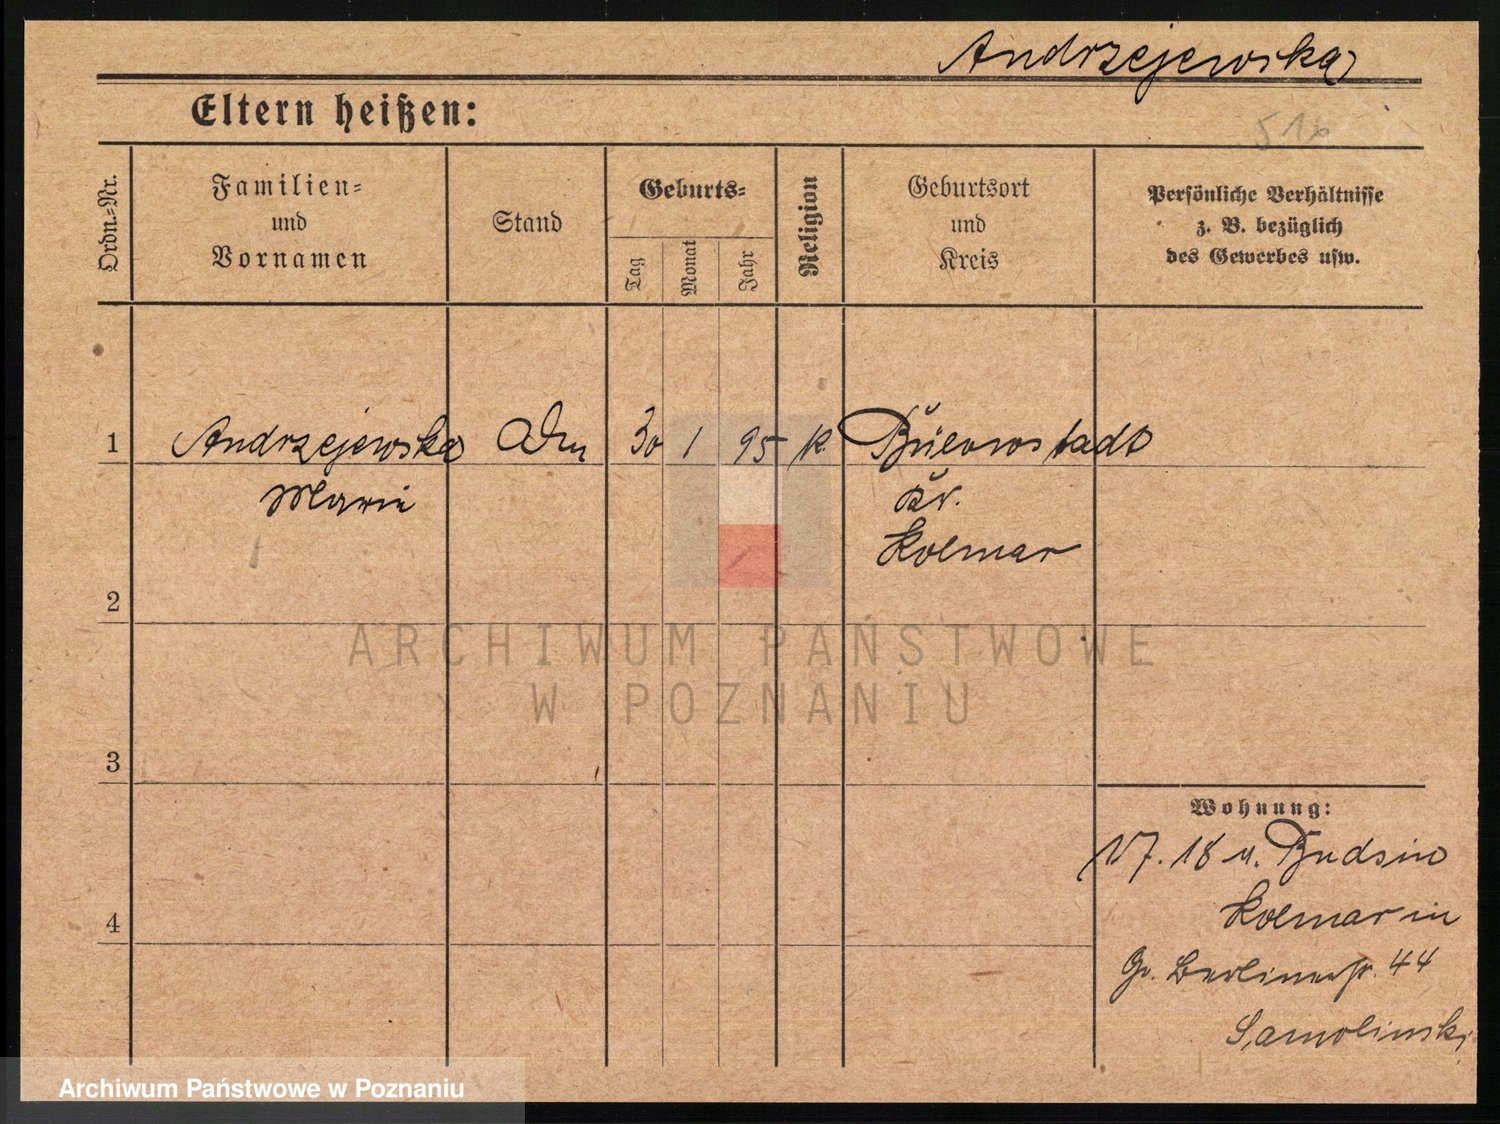 Andrzejewska
Eltern heißen:
Ordn.-Nr.
Familien-
und
Vornamen
Stand
Geburts-
Tag
Monat
Jahr
Religion
Geburtsort
und
Kreis
Persönliche Verhältnisse
z. B. bezüglich
des Gewerbes usw.
1 Andrzejewska 30 1 95 k.
Marie
Kr.
Kolmar
2
3
4
Wohnung:
17. 18 v. Budsin
Kolmar in
Gr. Berlinerstr. 44
Samolinski
ARCHIWUM PAŃSTWOWE
W POZNANIU
Archiwum Państwowe w Poznaniu